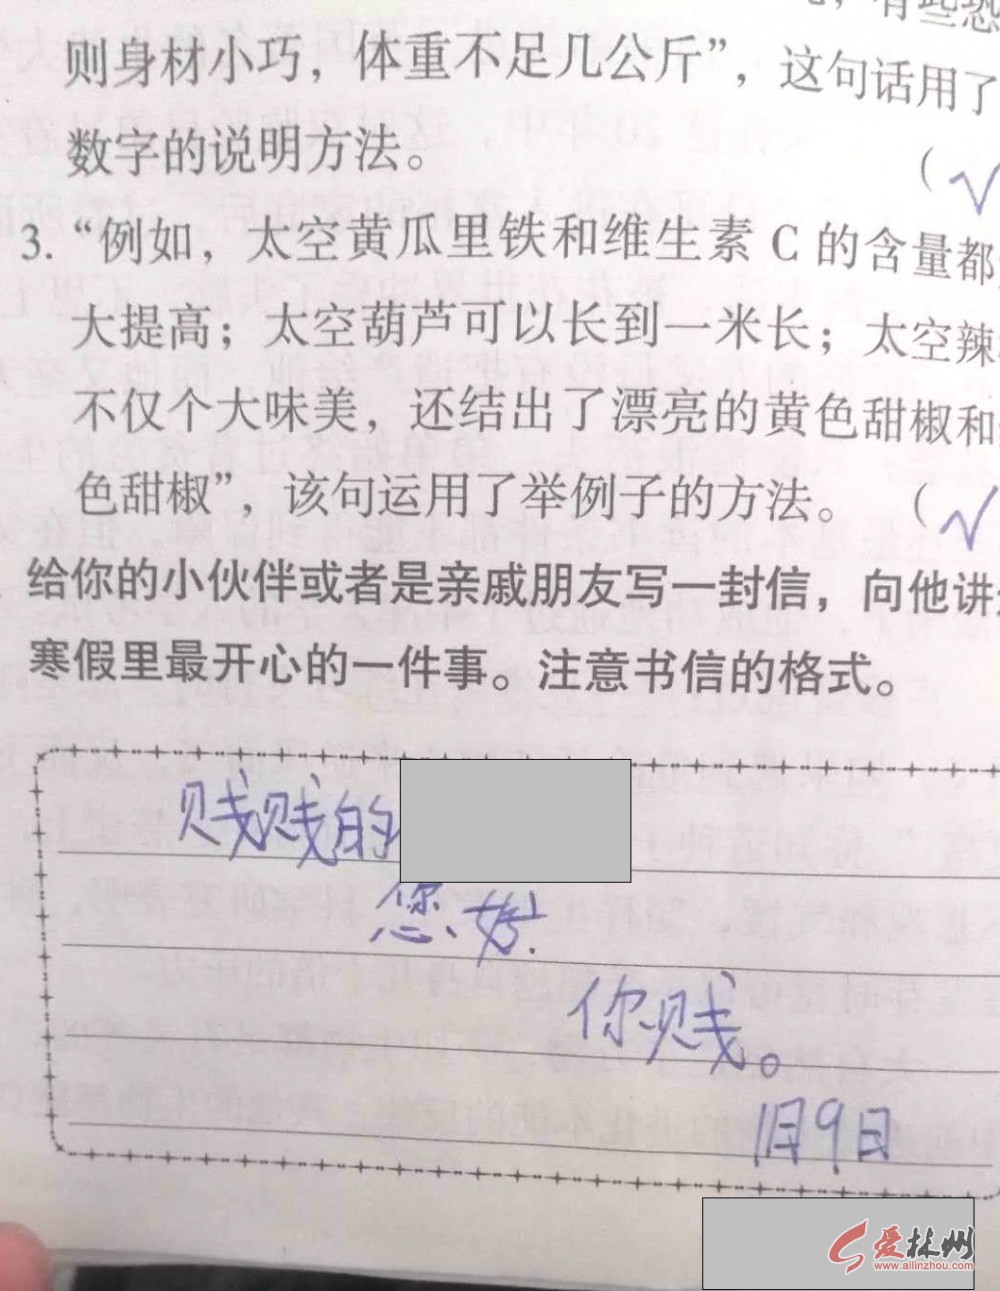 有些恐
则身材小巧，体重不足几公斤”，这句话用了
数字的说明方法。 （√
3. “例如，太空黄瓜里铁和维生素 C 的含量都
大提高；太空葫芦可以长到一米长；太空辣
不仅个大味美，还结出了漂亮的黄色甜椒和
色甜椒”，该句运用了举例子的方法。 （√
给你的小伙伴或者是亲戚朋友写一封信，向他讲
寒假里最开心的一件事。注意书信的格式。
贱贱的
您好.
你贱。
1日9日
爱林州
www.ailinzhou.com